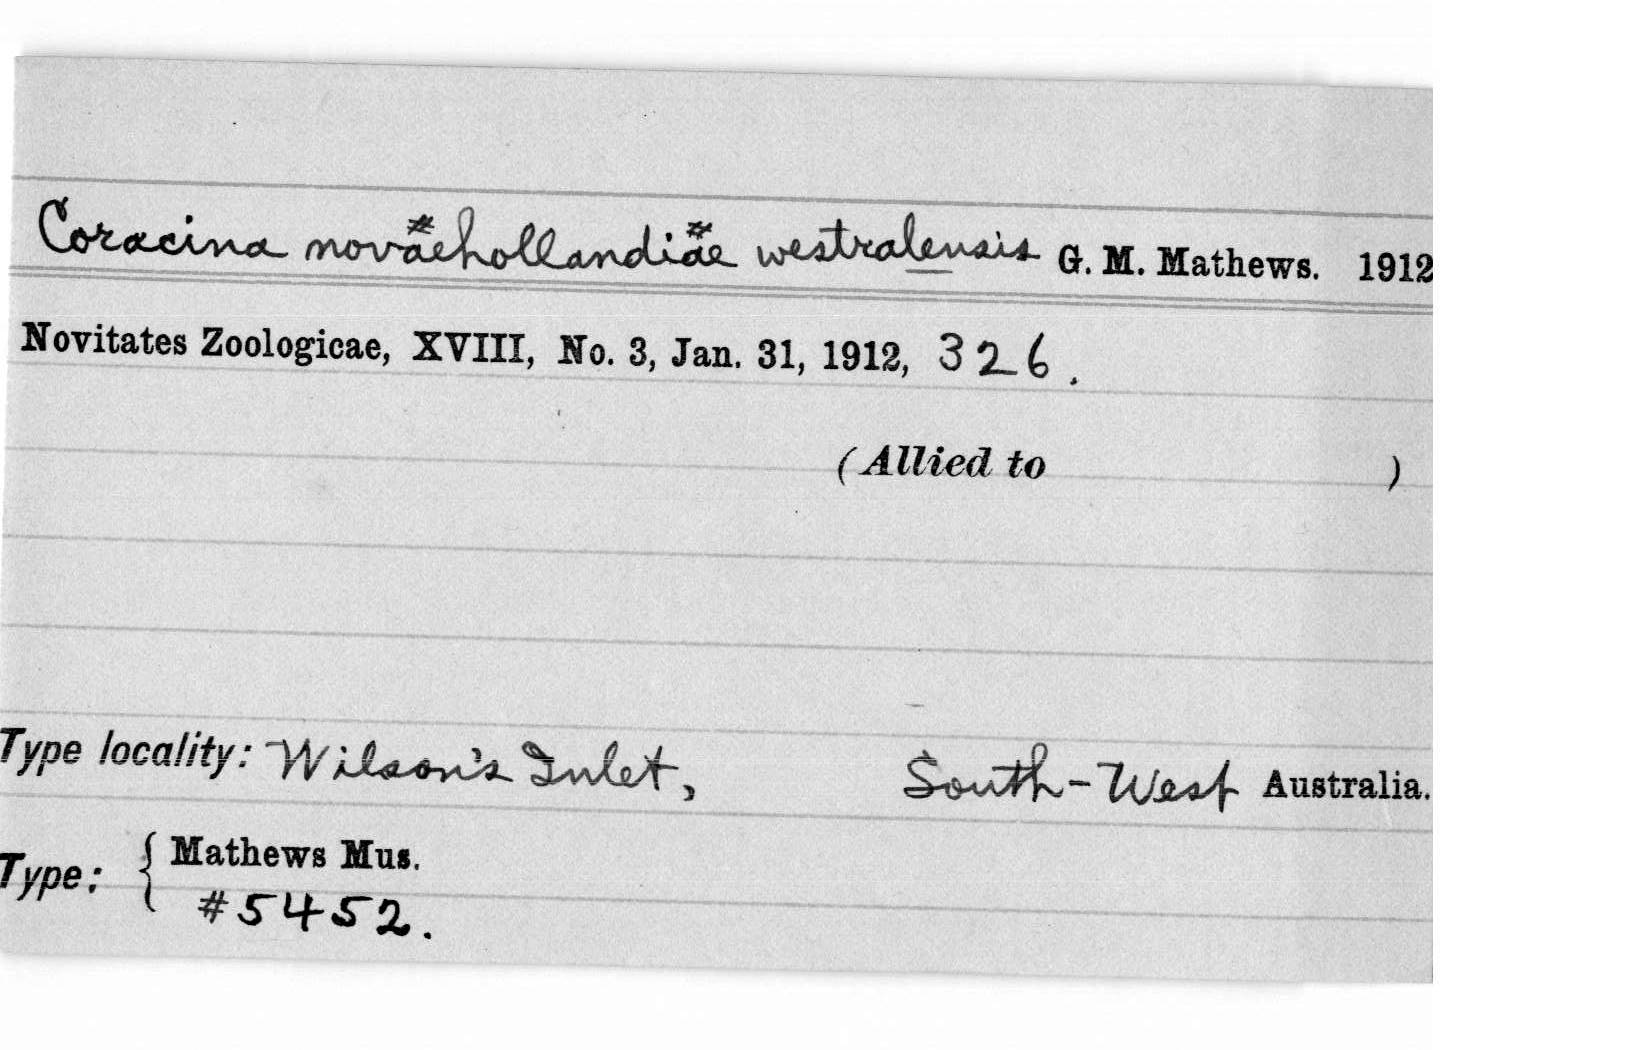 Coracina novaehollandiae westralensis G. M. Mathews. 1912
Novitates Zoologicae, XVIII, No. 3, Jan. 31, 1912, 326.
(Allied to )
Type locality: Wilson's Inlet, South-West Australia.
Type: { Mathews Mus.
#5452.